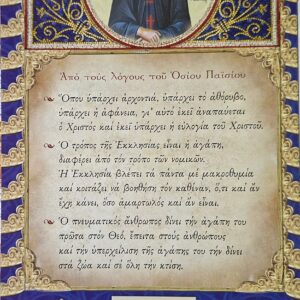 Ἀπό τούς λόγους τοῦ Ὁσίου Παϊσίου
Ὅπου ὑπάρχει ἀρχοντιά, ὑπάρχει τό ἀθόρυβο,
ὑπάρχει ἡ ἀφάνεια, γι' αὐτό ἐκεῖ ἀναπαύεται
ὁ Χριστός καί ἐκεῖ ὑπάρχει ἡ εὐλογία τοῦ Χριστοῦ.
Ὁ τρόπος τῆς Ἐκκλησίας εἶναι ἡ ἀγάπη,
διαφέρει ἀπό τόν τρόπο τῶν νομικῶν.
Ἡ Ἐκκλησία βλέπει τά πάντα μέ μακροθυμία
καί κοιτάζει νά βοηθήση τόν καθέναν, ὅ,τι καί ἄν
ἔχη κάνει, ὅσο ἁμαρτωλός καί ἄν εἶναι.
Ὁ πνευματικός ἄνθρωπος δίνει τήν ἀγάπη του
πρῶτα στόν Θεό, ἔπειτα στούς ἀνθρώπους
καί τήν ὑπερχείλιση τῆς ἀγάπης του τήν δίνει
στά ζῶα καί σέ ὅλη τήν κτίση.